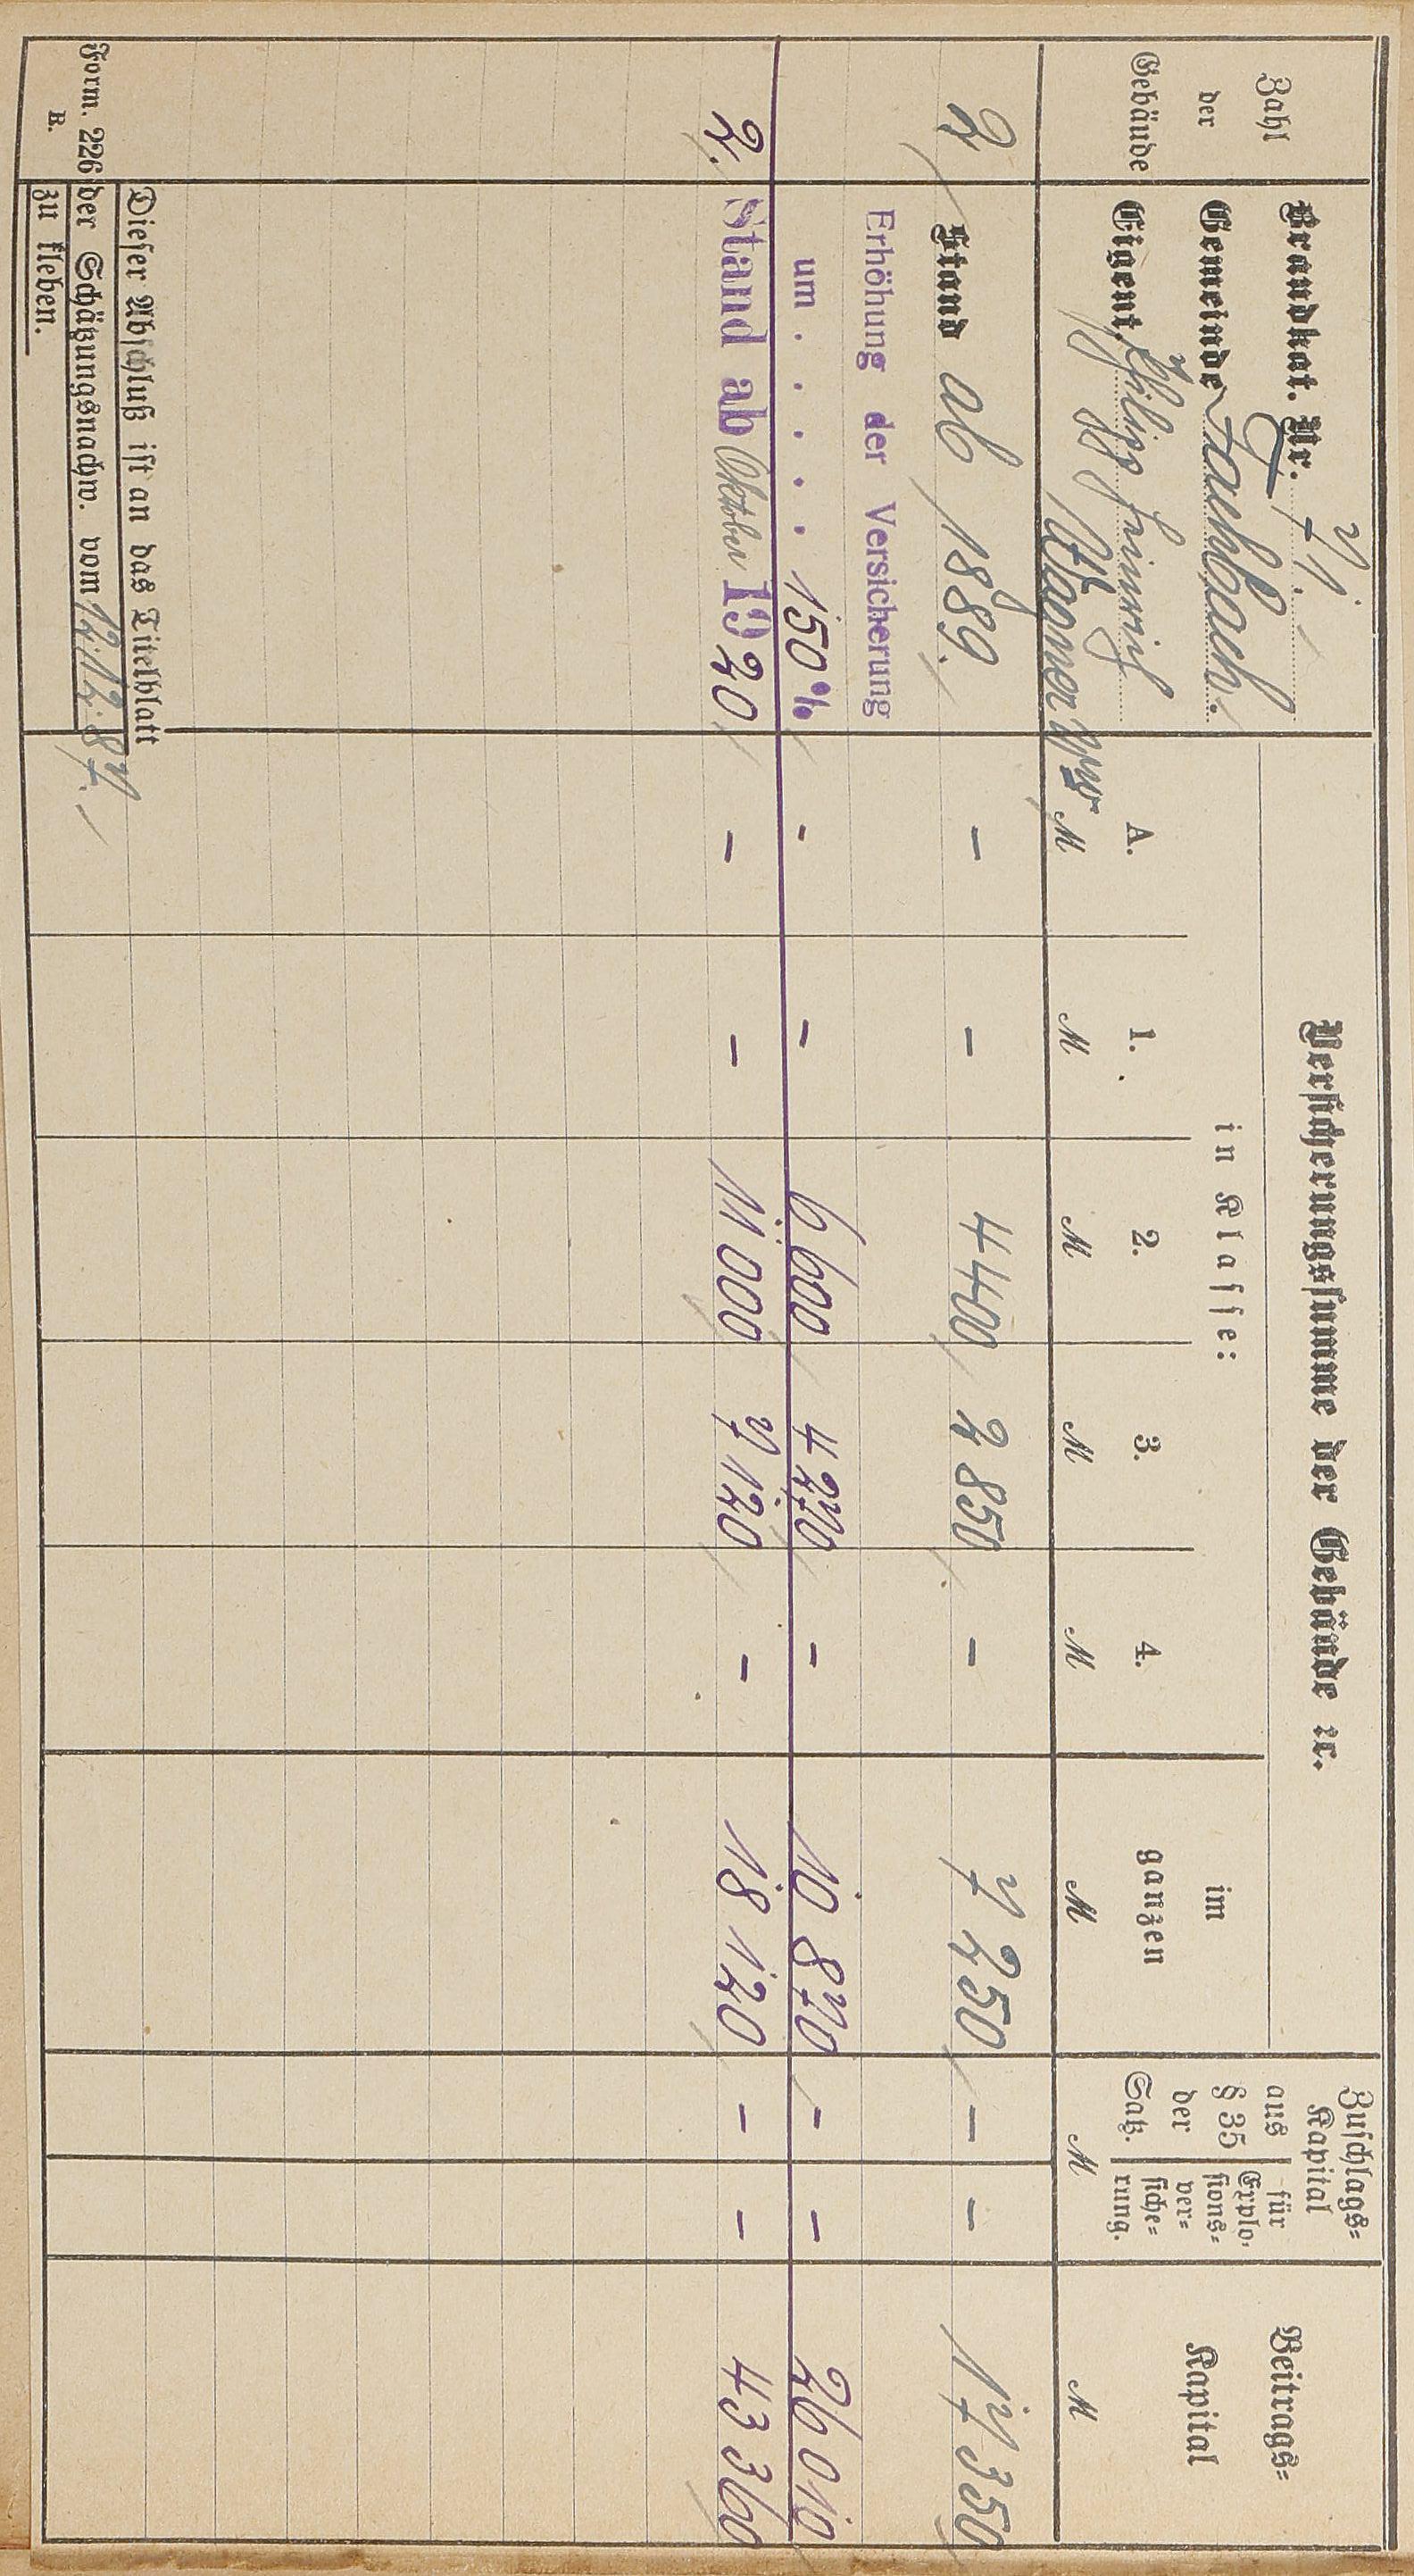 Zahl der Gebäude
Brandkat. Nr. 71.
Gemeinde Faulbach.
Eigent. Philipp Heinrich
Versicherungssumme der Gebäude ꝛc.
in Klasse:
A. 1. 2. 3. 4. im ganzen
Zuschlags=Kapital
aus § 35 der Satz.
für Explosions=versiche=rung.
Beitrags=Kapital
M M M M M M M M
2 Stand ab 1889. – – 4400 2850 – 7250 – – 17350
Erhöhung der Versicherung
um . . . . . 150% – – 6600 4270 – 10870 – – 26010
2. Stand ab Oktober 1920 – – 11000 7120 – 18120 – – 43360
Dieser Abschluß ist an das Titelblatt
Form. 226 der Schätzungsnachw. vom 12.12.87.
B. zu kleben.